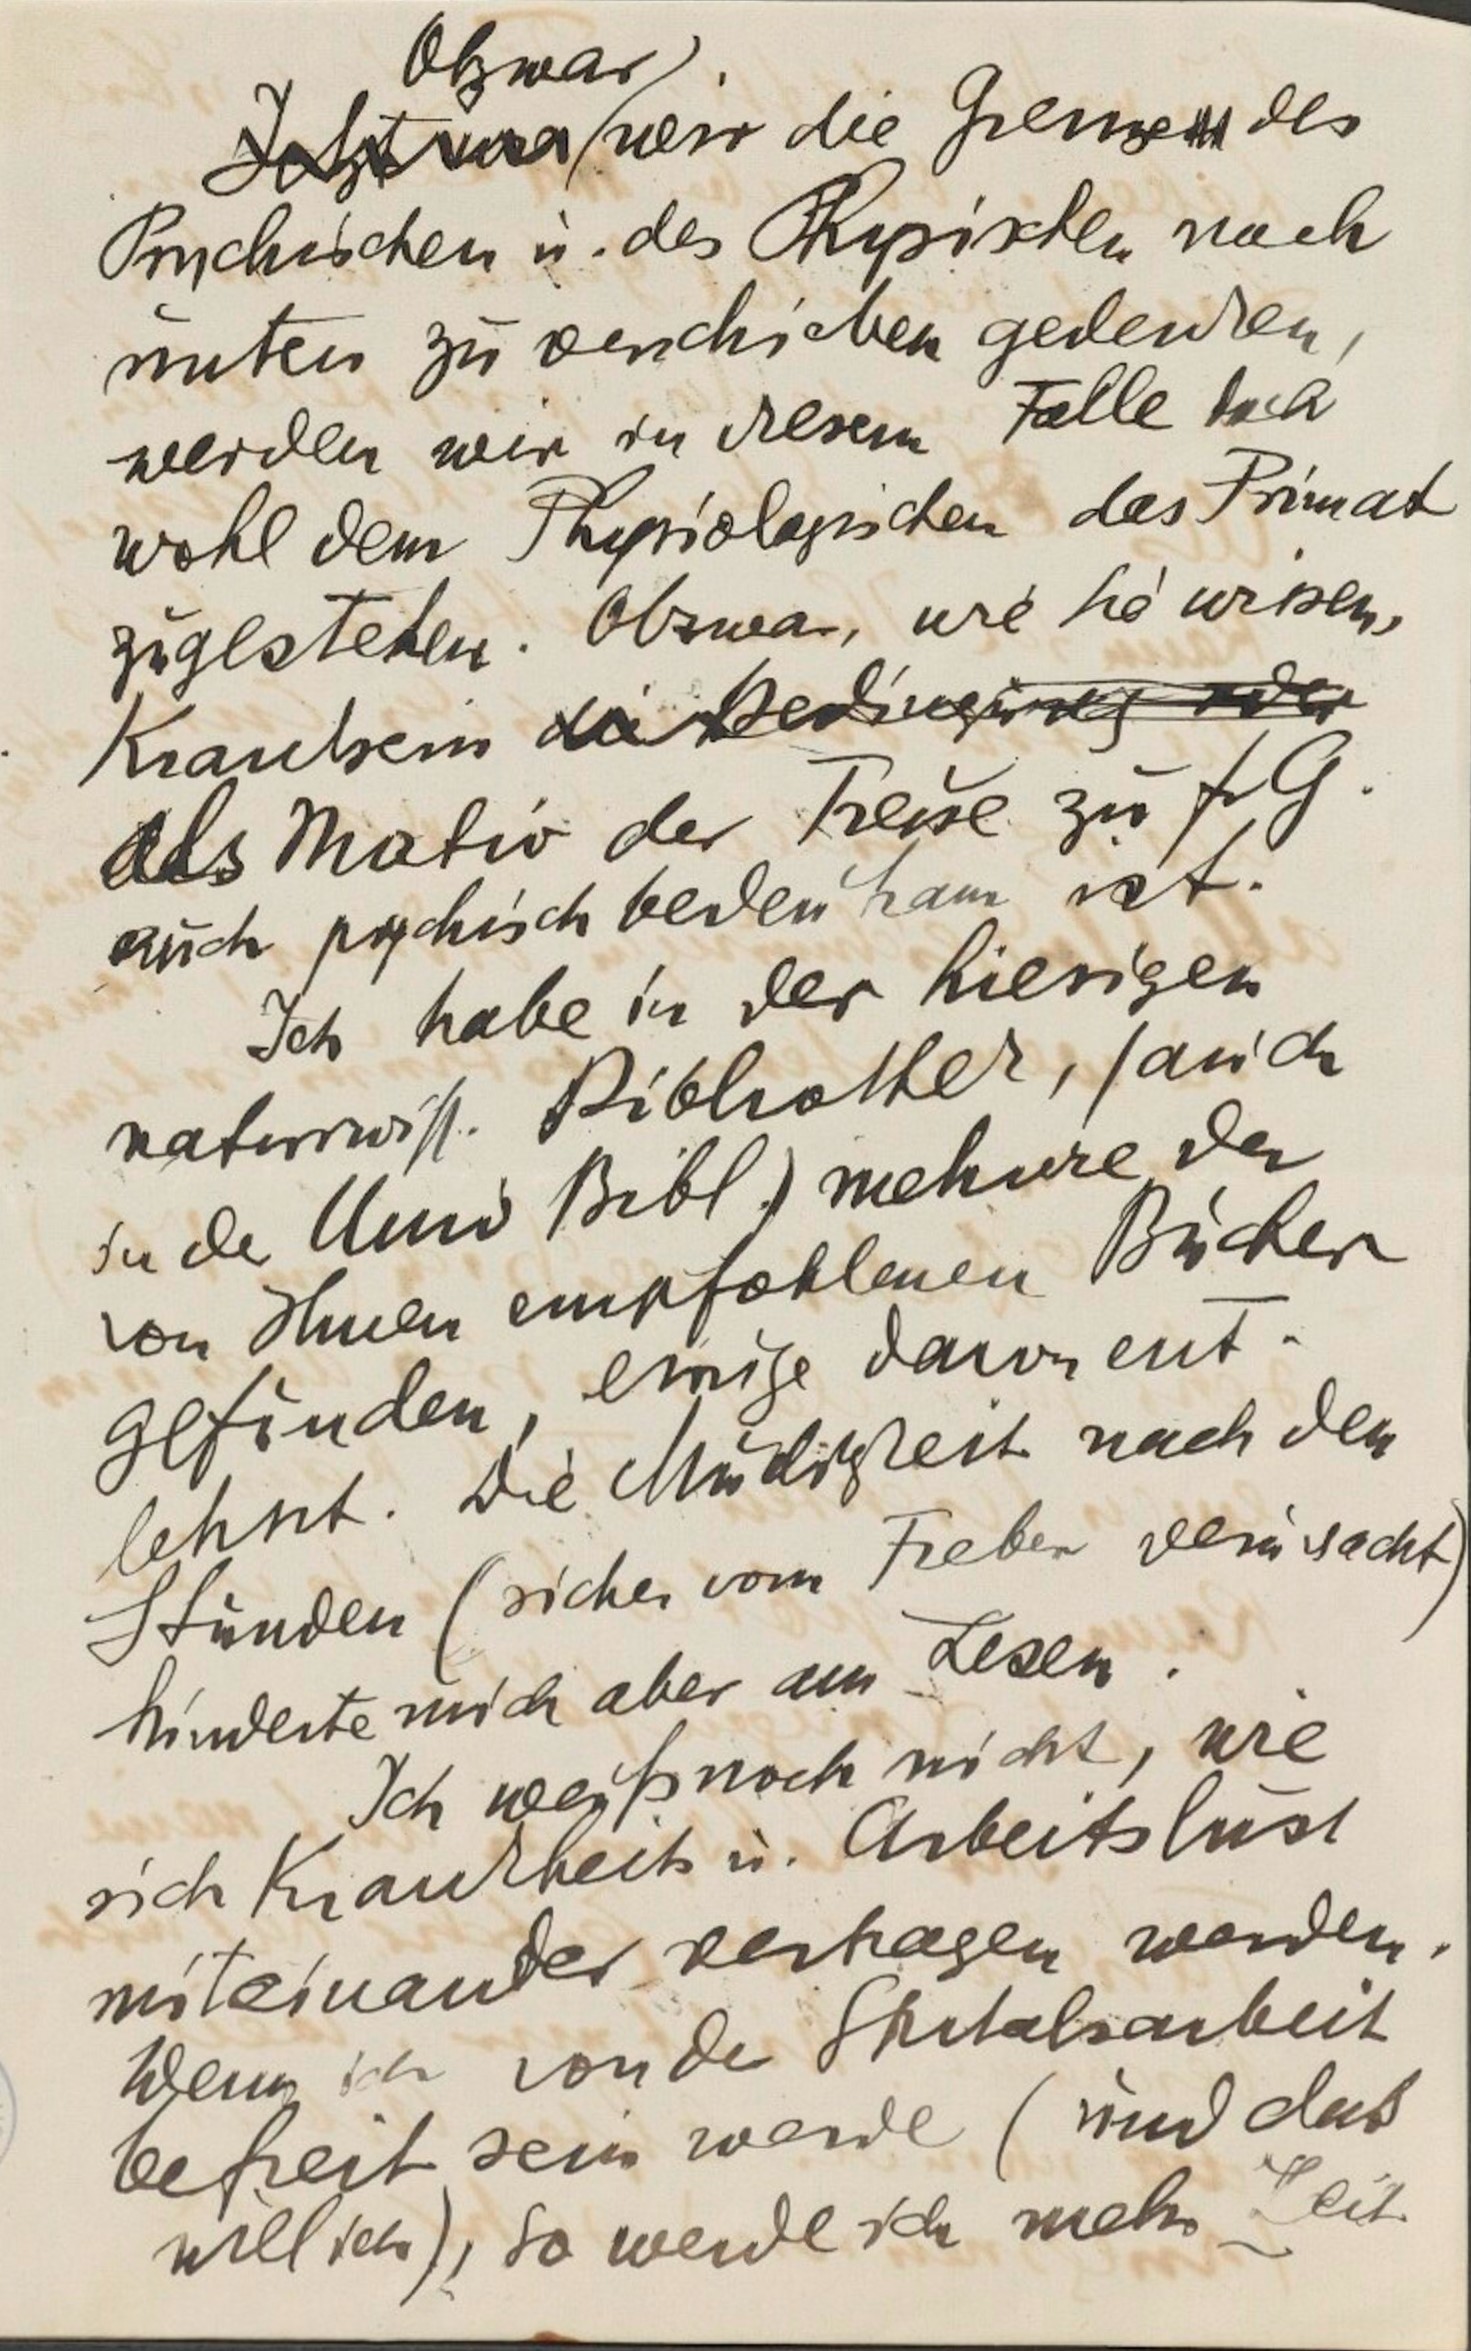 Obzwar
Jetzt wir die Grenze des
Psychischen u. des Physischen nach
unten zu verschieben gedenken,
werden wir in diesem Falle doch
wohl dem Physiologischen das Primat
zugestehen. Obzwar, wie Sie wissen,
Kranksein die Bedingung oder
als Motiv der Treue zu fr G.
auch psychisch bedeutsam ist.
Ich habe in der hiesigen
naturwiss. Bibliothek, (auch
in der Univ Bibl.) mehrere der
von Ihnen empfohlenen Bücher
gefunden, einige davon ent-
lehnt. Die Müdigkeit nach den
Stunden (sicher vom Fieber verursacht)
hinderte mich aber am Lesen.
Ich weiß noch nicht, wie
sich Krankheit u. Arbeitslust
miteinander vertragen werden.
Wenn ich von der Spitalsarbeit
befreit sein werde (und das
will ich), so werde ich mehr Zeit